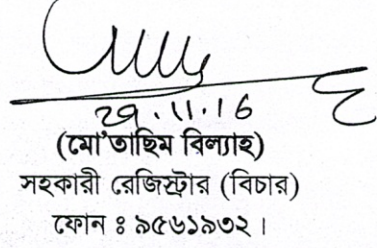 29.11.16
(মো'তাছিম বিল্যাহ)
সহকারী রেজিস্ট্রার (বিচার)
ফোন ঃ ৯৫৬১৯৩২।